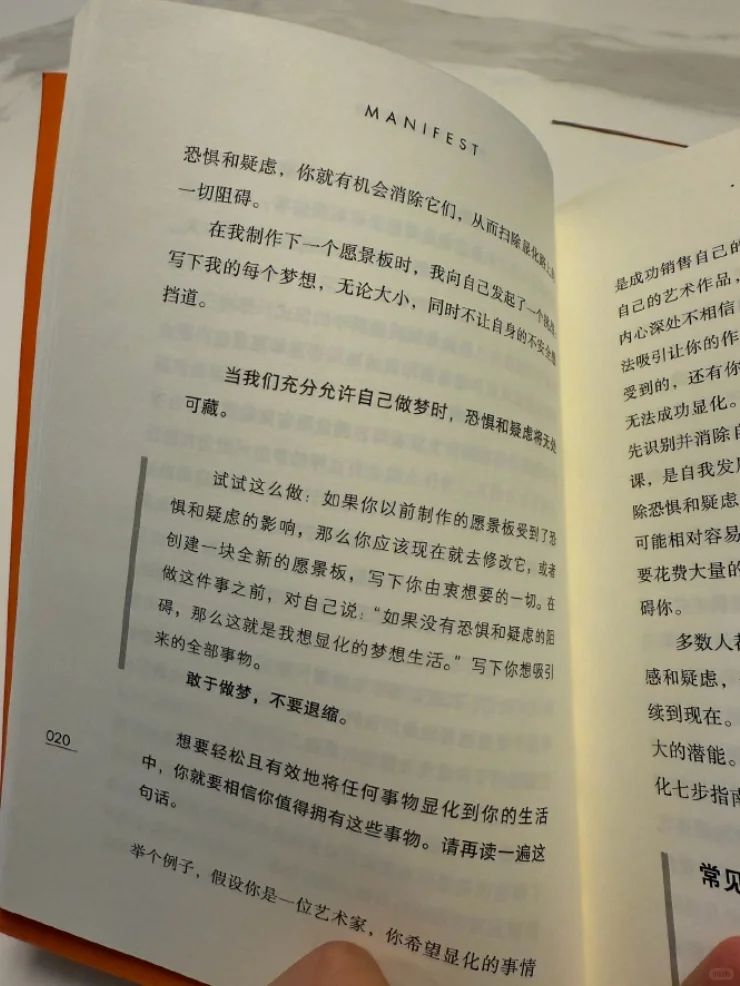 MANIFEST
恐惧和疑虑，你就有机会消除它们，从而扫除显化路上的
一切阻碍。
在我制作下一个愿景板时，我向自己发起了一个挑战，
写下我的每个梦想，无论大小，同时不让自身的不安全感
挡道。
当我们充分允许自己做梦时，恐惧和疑虑将无处
可藏。
试试这么做：如果你以前制作的愿景板受到了恐
惧和疑虑的影响，那么你应该现在就去修改它，或者
创建一块全新的愿景板，写下你由衷想要的一切。在
做这件事之前，对自己说：“如果没有恐惧和疑虑的阻
碍，那么这就是我想显化的梦想生活。”写下你想吸引
来的全部事物。
敢于做梦，不要退缩。
020
想要轻松且有效地将任何事物显化到你的生活
中，你就要相信你值得拥有这些事物。请再读一遍这
句话。
举个例子，假设你是一位艺术家，你希望显化的事情
是成功销售自己的
自己的艺术作品，
内心深处不相信
法吸引让你的作
受到的，还有你
无法成功显化。
先识别并消除
课，是自我发
除恐惧和疑虑
可能相对容易
要花费大量的
碍你。
多数人都
感和疑虑，
续到现在。
大的潜能。
化七步指南
常见